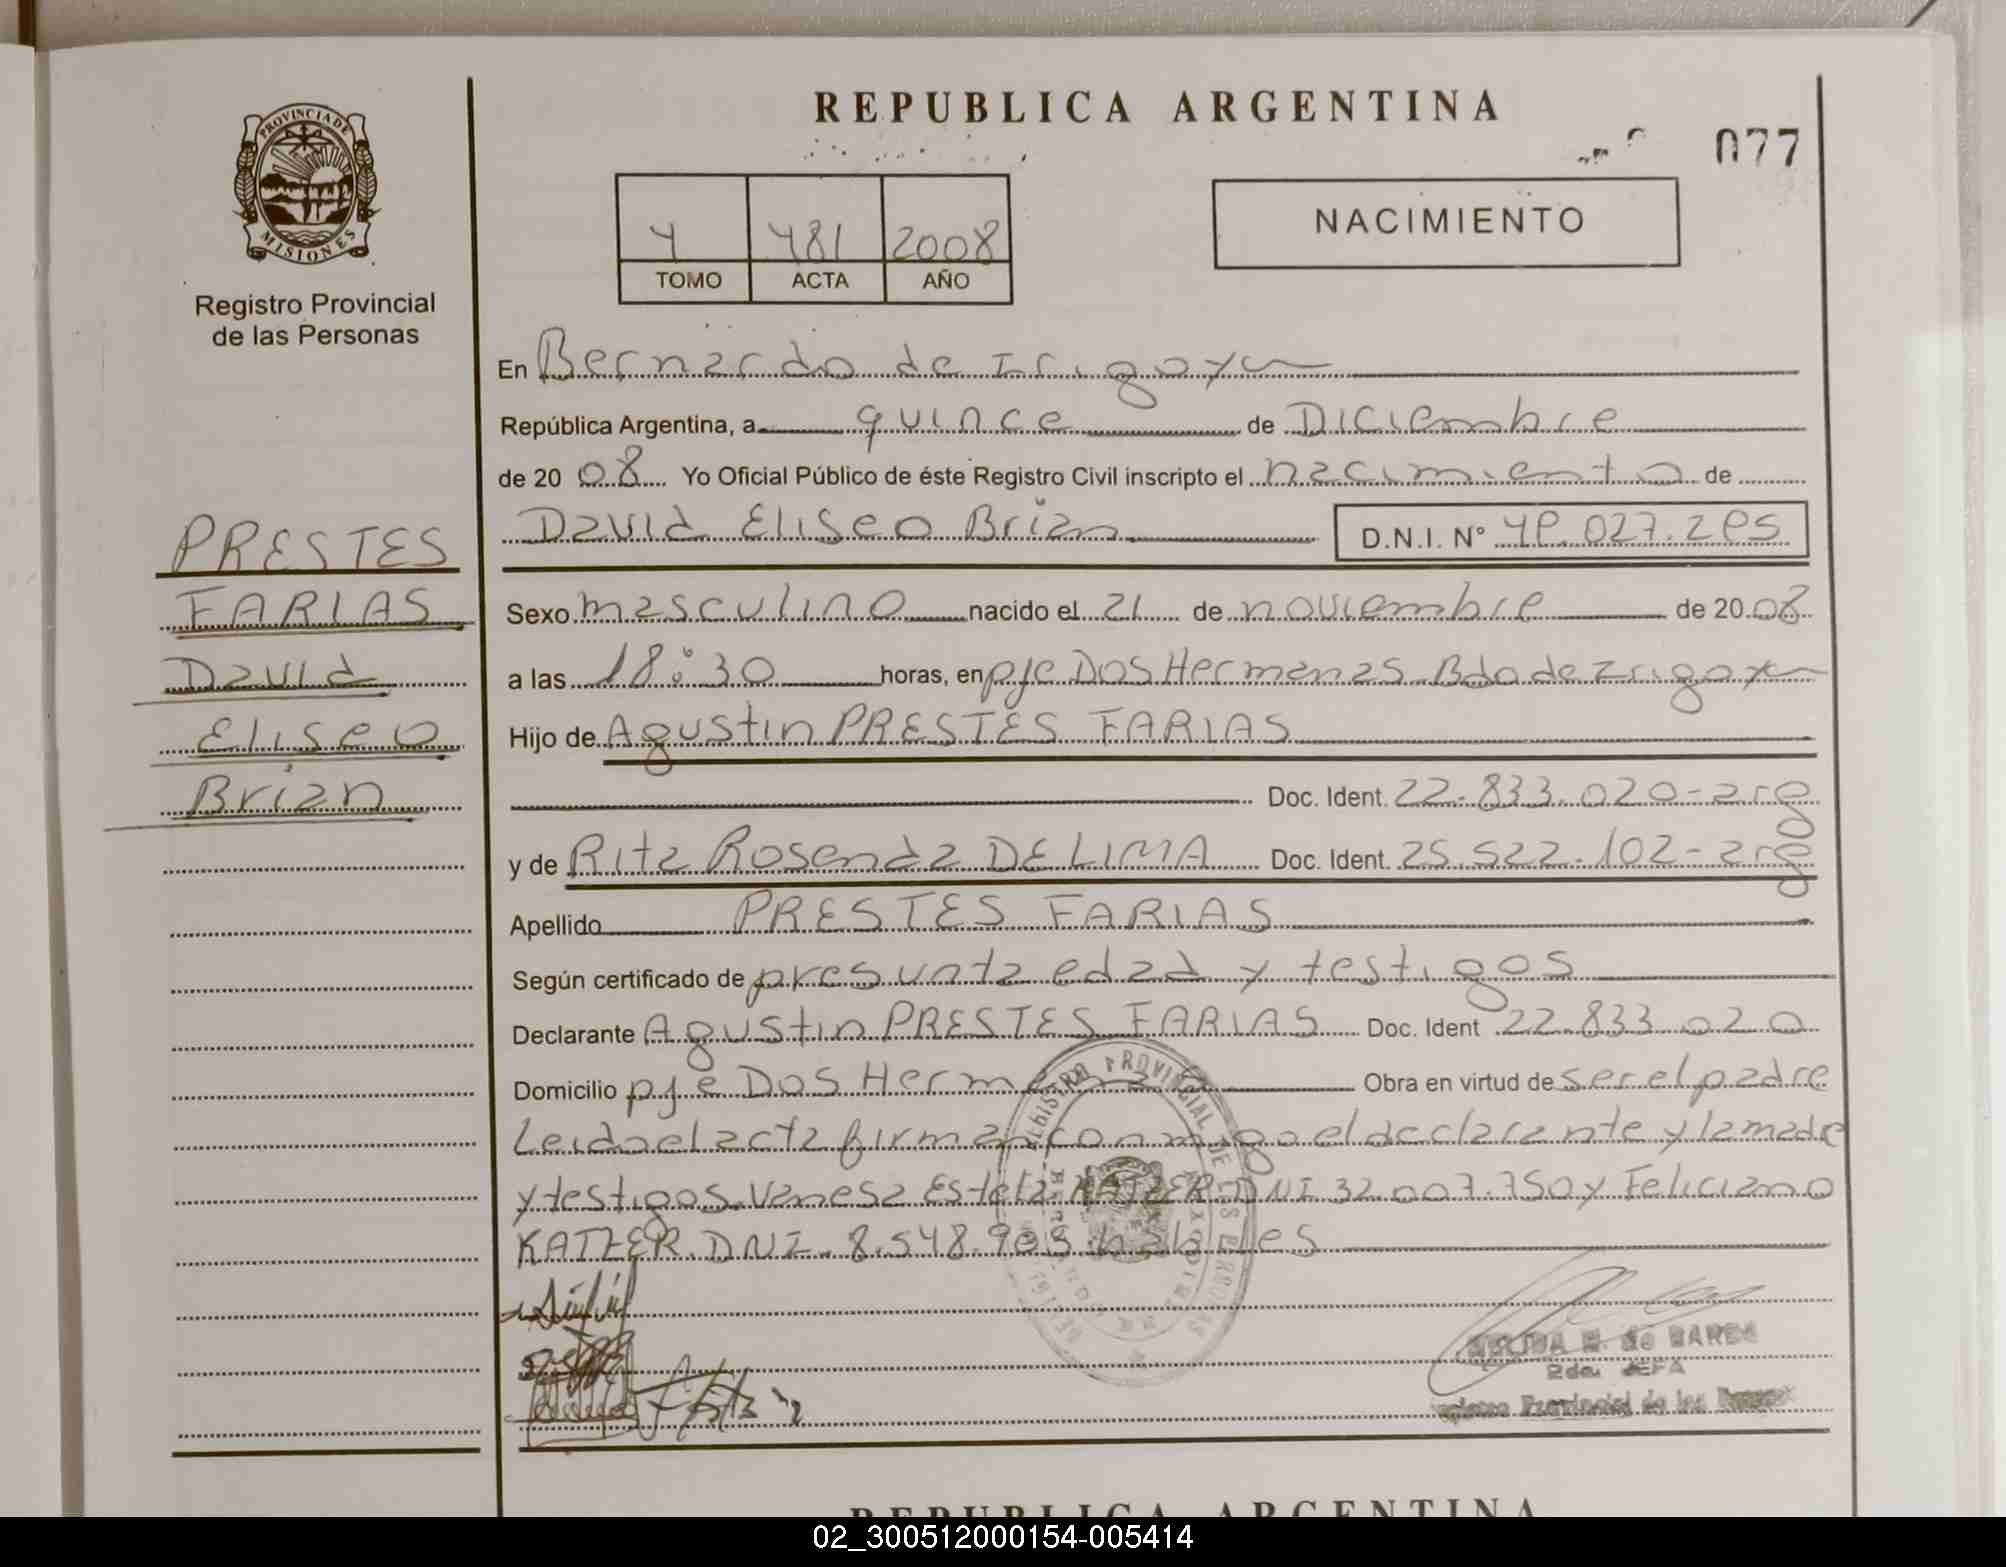 REPUBLICA ARGENTINA
077
PROVINCIA DE
MISIONES
Registro Provincial
de las Personas
4 481 2008
TOMO ACTA AÑO
NACIMIENTO
En Bernardo de Irigoyen
República Argentina, a quince de Diciembre
de 20 08 Yo Oficial Público de éste Registro Civil inscripto el nacimiento de
David Eliseo Brian D.N.I. Nº
PRESTES
FARIAS
David
Eliseo
Brian
Sexo masculino nacido el 21 de noviembre de 20 08
a las 18:30 horas, en pje Dos Hermanas Bdo de Irigoyen
Hijo de Agustin PRESTES FARIAS
Doc. Ident. 22.833.020-arg
y de Rita Rosenda DE LIMA Doc. Ident. 25.522.102-arg
Apellido PRESTES FARIAS
Según certificado de presunta edad y testigos
Declarante Agustin PRESTES FARIAS Doc. Ident 22.833.020
Domicilio pje Dos Hermanas Obra en virtud de ser el padre
Leido el acta firman conmigo el declarante y la madre
y testigos Vanesa Estela KATZER DNI 32.007.750 y Feliciano
KATZER DNI 8.548.905 habiles
REGISTRO PROVINCIAL DE LAS PERSONAS
2da. JEFA
Registro Provincial de las Personas
REPUBLICA ARGENTINA
02_300512000154-005414